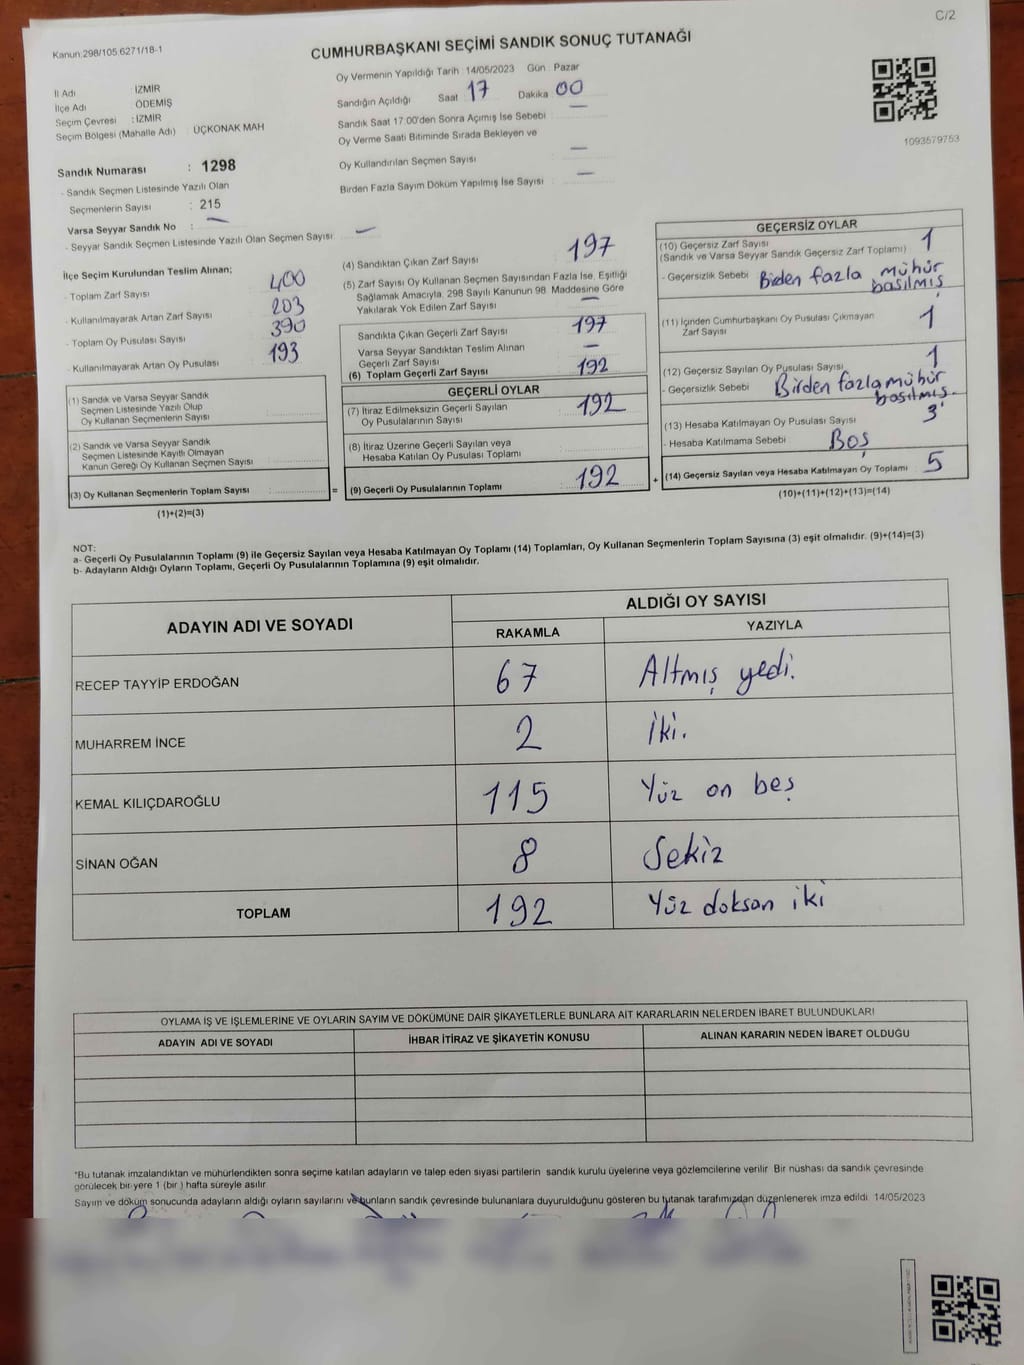 C/2
Kanun:298/105 6271/18-1
CUMHURBAŞKANI SEÇİMİ SANDIK SONUÇ TUTANAĞI
Oy Vermenin Yapıldığı Tarih : 14/05/2023 Gün : Pazar
İl Adı : İZMİR
İlçe Adı : ÖDEMİŞ
Seçim Çevresi : İZMİR
Seçim Bölgesi (Mahalle Adı) : ÜÇKONAK MAH
Sandığın Açıldığı Saat : 17 Dakika : 00
Sandık Saat 17:00'den Sonra Açımış İse Sebebi : —
Oy Verme Saati Bitiminde Sırada Bekleyen ve
Oy Kullandırılan Seçmen Sayısı : —
Birden Fazla Sayım Döküm Yapılmış İse Sayısı : —
1093579753
Sandık Numarası : 1298
- Sandık Seçmen Listesinde Yazılı Olan
Seçmenlerin Sayısı : 215
Varsa Seyyar Sandık No : —
- Seyyar Sandık Seçmen Listesinde Yazılı Olan Seçmen Sayısı : —
İlçe Seçim Kurulundan Teslim Alınan;
- Toplam Zarf Sayısı : 400
- Kullanılmayarak Artan Zarf Sayısı : 203
- Toplam Oy Pusulası Sayısı : 390
- Kullanılmayarak Artan Oy Pusulası : 193
(1) Sandık ve Varsa Seyyar Sandık
Seçmen Listesinde Yazılı Olup
Oy Kullanan Seçmenlerin Sayısı :
(2) Sandık ve Varsa Seyyar Sandık
Seçmen Listesinde Kayıtlı Olmayan
Kanun Gereği Oy Kullanan Seçmen Sayısı :
(3) Oy Kullanan Seçmenlerin Toplam Sayısı : =
(1)+(2)=(3)
(4) Sandıktan Çıkan Zarf Sayısı : 197
(5) Zarf Sayısı Oy Kullanan Seçmen Sayısından Fazla İse, Eşitliği
Sağlamak Amacıyla, 298 Sayılı Kanunun 98. Maddesine Göre
Yakılarak Yok Edilen Zarf Sayısı : —
Sandıkta Çıkan Geçerli Zarf Sayısı : 197
Varsa Seyyar Sandıktan Teslim Alınan
Geçerli Zarf Sayısı : —
(6) Toplam Geçerli Zarf Sayısı : 192
GEÇERLİ OYLAR
(7) İtiraz Edilmeksizin Geçerli Sayılan
Oy Pusulasının Sayısı : 192
(8) İtiraz Üzerine Geçerli Sayılan veya
Hesaba Katılan Oy Pusulası Toplamı :
(9) Geçerli Oy Pusulalarının Toplamı : 192 +
GEÇERSİZ OYLAR
(10) Geçersiz Zarf Sayısı
(Sandık ve Varsa Seyyar Sandık Geçersiz Zarf Toplamı) : 1
- Geçersizlik Sebebi : Birden fazla mühür
basılmış
(11) İçinden Cumhurbaşkanı Oy Pusulası Çıkmayan
Zarf Sayısı : 1
(12) Geçersiz Sayılan Oy Pusulası Sayısı : 1
- Geçersizlik Sebebi : Birden fazla mühür
basılmış.
(13) Hesaba Katılmayan Oy Pusulası Sayısı : 3
- Hesaba Katılmama Sebebi : Boş
(14) Geçersiz Sayılan veya Hesaba Katılmayan Oy Toplamı : 5
(10)+(11)+(12)+(13)=(14)
NOT:
a- Geçerli Oy Pusulalarının Toplamı (9) ile Geçersiz Sayılan veya Hesaba Katılmayan Oy Toplamı (14) Toplamları, Oy Kullanan Seçmenlerin Toplam Sayısına (3) eşit olmalıdır. (9)+(14)=(3)
b- Adayların Aldığı Oyların Toplamı, Geçerli Oy Pusulalarının Toplamına (9) eşit olmalıdır.
ADAYIN ADI VE SOYADI ALDIĞI OY SAYISI
RAKAMLA YAZIYLA
RECEP TAYYİP ERDOĞAN 67 Altmış yedi.
MUHARREM İNCE 2 İki.
KEMAL KILIÇDAROĞLU 115 Yüz on beş
SİNAN OĞAN 8 Sekiz
TOPLAM 192 Yüz doksan iki
OYLAMA İŞ VE İŞLEMLERİNE VE OYLARIN SAYIM VE DÖKÜMÜNE DAİR ŞİKAYETLERLE BUNLARA AİT KARARLARIN NELERDEN İBARET BULUNDUKLARI
ADAYIN ADI VE SOYADI İHBAR İTİRAZ VE ŞİKAYETİN KONUSU ALINAN KARARIN NEDEN İBARET OLDUĞU
*Bu tutanak imzalandıktan ve mühürlendikten sonra seçime katılan adayların ve talep eden siyasi partilerin sandık kurulu üyelerine veya gözlemcilerine verilir. Bir nüshası da sandık çevresinde
görülecek bir yere 1 (bir ) hafta süreyle asılır.
Sayım ve döküm sonucunda adayların aldığı oyların sayılarını ve bunların sandık çevresinde bulunanlara duyurulduğunu gösteren bu tutanak tarafımızdan düzenlenerek imza edildi. 14/05/2023